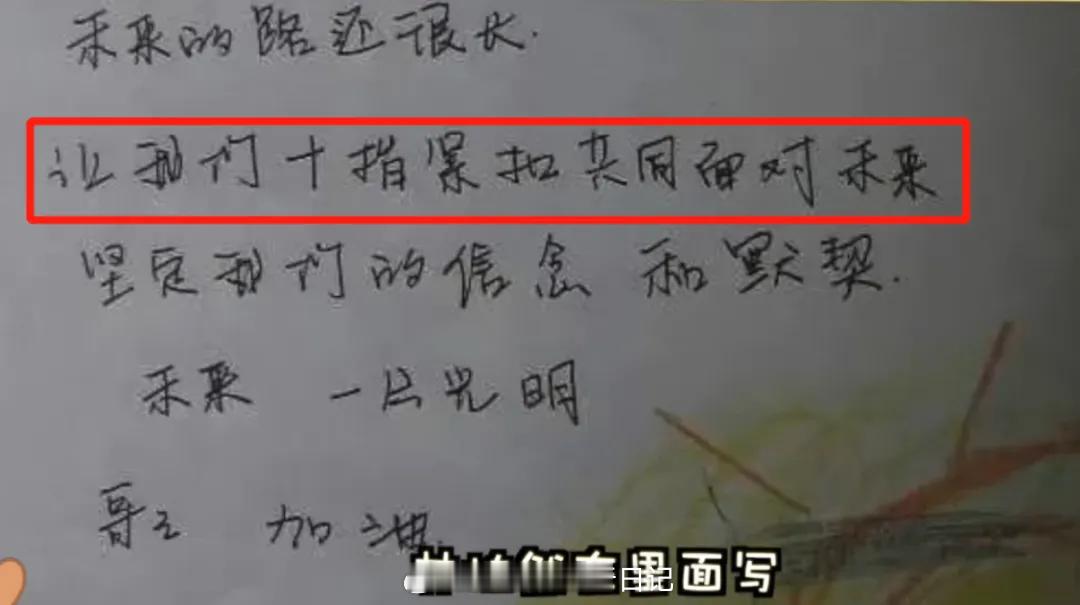 未来的路还很长.
让我们十指紧扣共同面对未来
坚定我们的信念 和默契.
未来 一片光明
哥哥 加油
里面写
日记